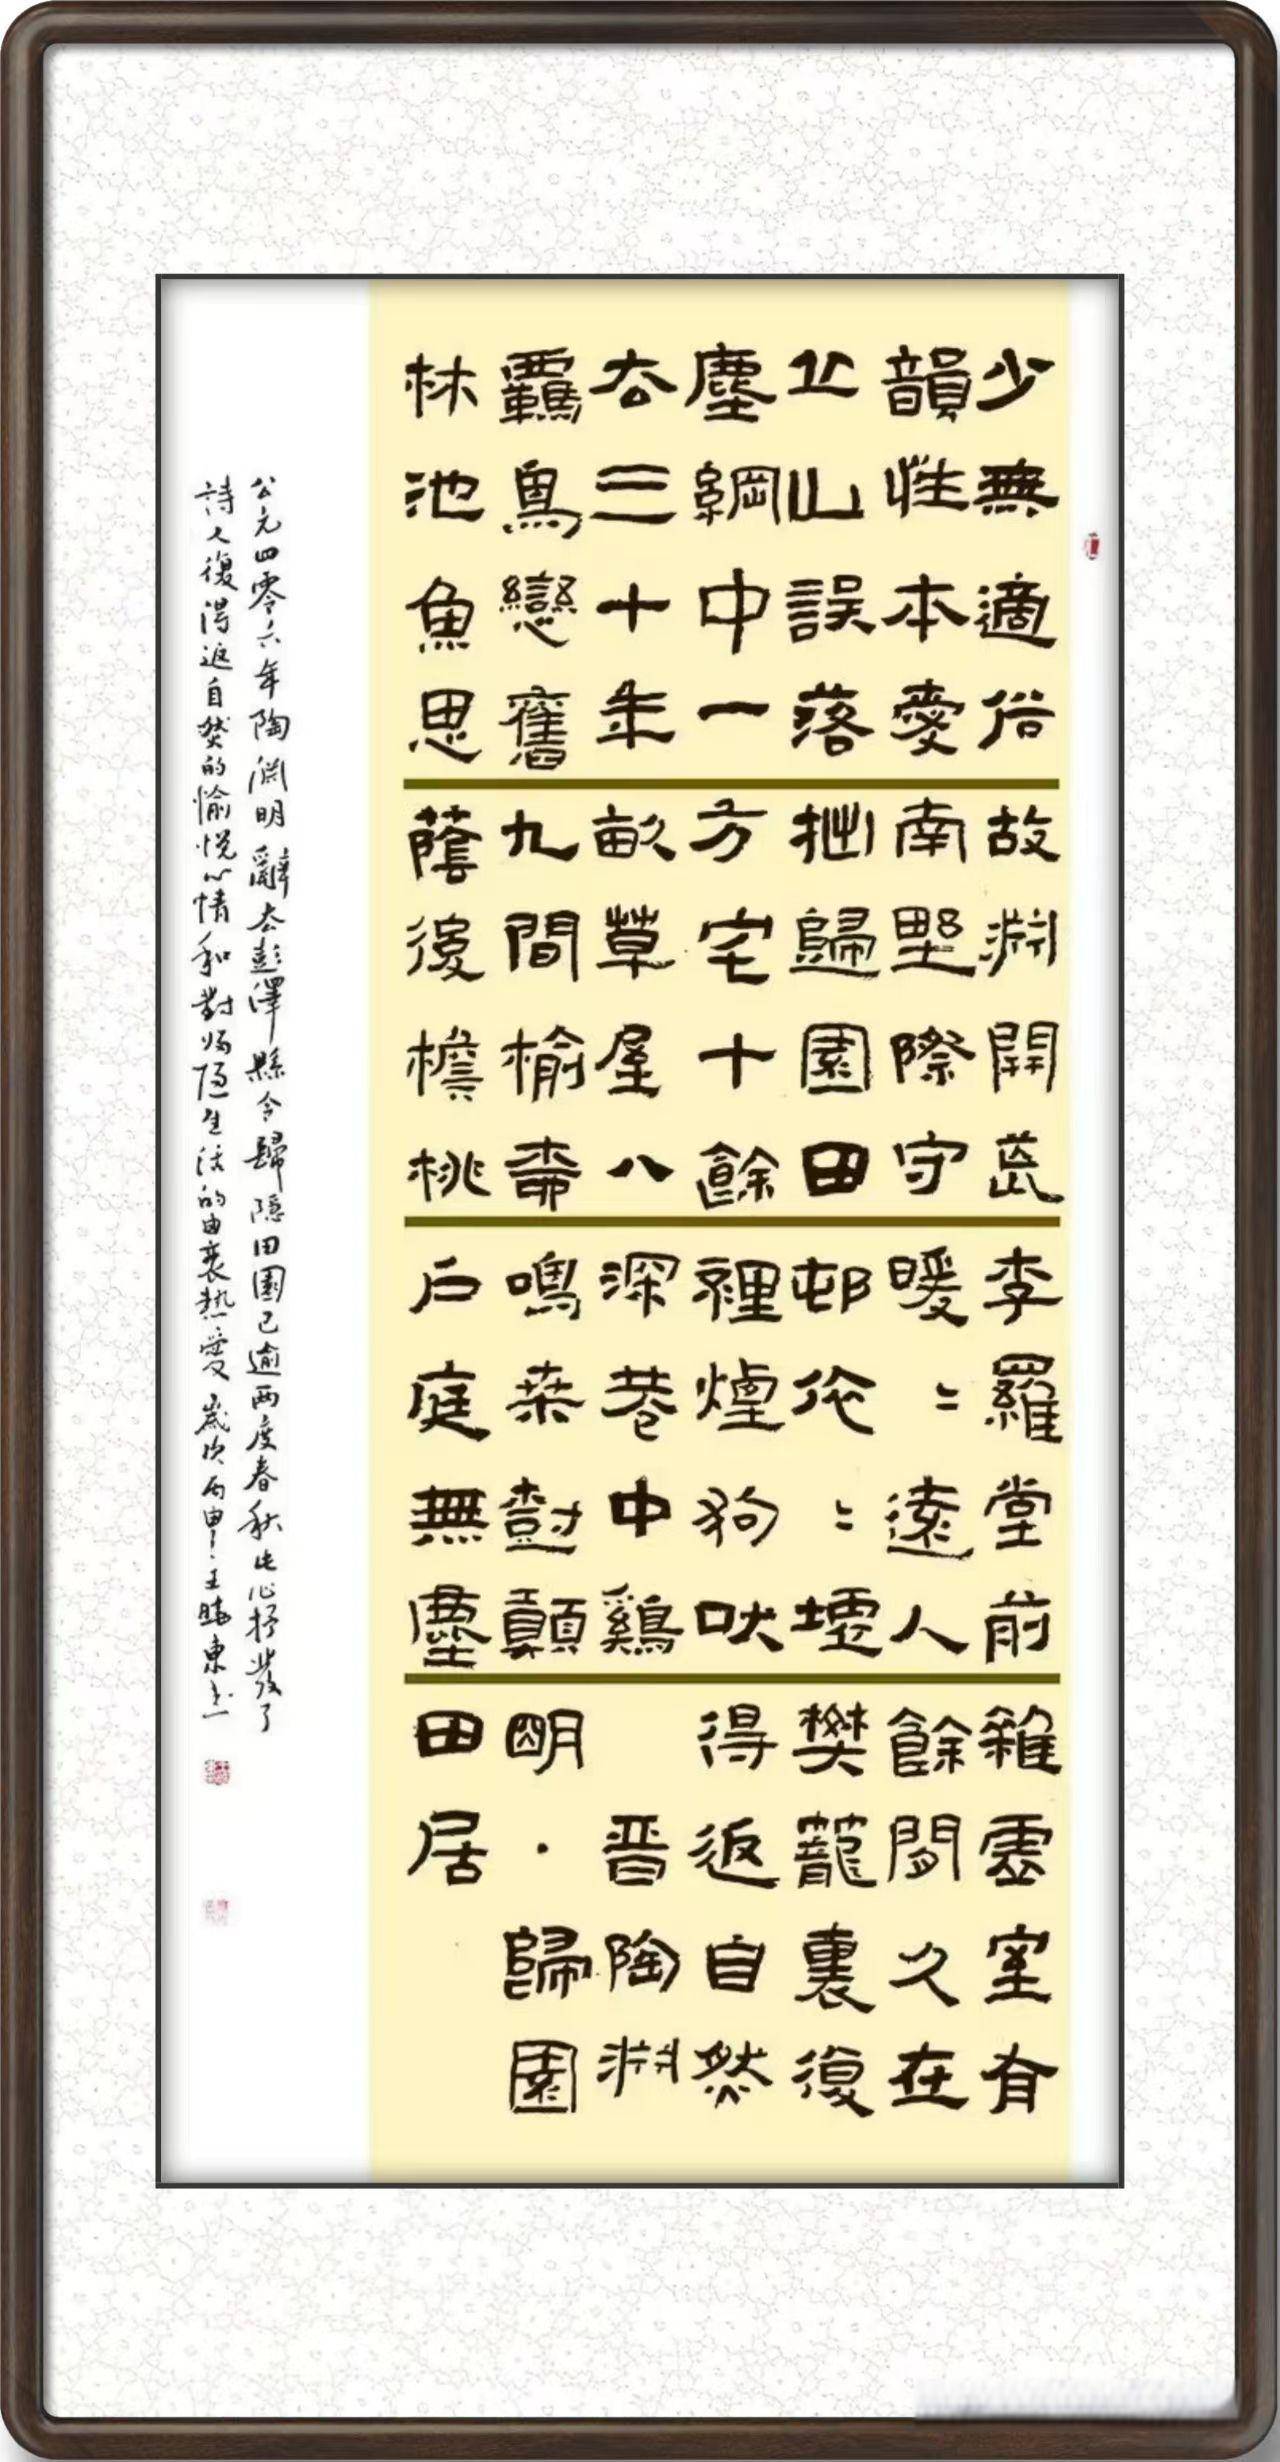 少無適俗
韻性本愛
丘山誤落
塵網中一
去三十年
羈鳥戀舊
林池魚思
故淵開荒
南野際守
拙歸園田
方宅十餘
畝草屋八
九間榆柳
蔭後檐桃
李羅堂前
暖〻遠人
邨依〻墟
裡煙狗吠
深巷中鷄
鳴桒樹顛
戶庭無塵
雜虛室有
餘閒久在
樊籠裏復
得返自然
晉陶淵
明·歸園
田居
公元四零六年陶淵明辭去彭澤縣令歸隱田園已逾兩度春秋此心抒發了
詩人復得返自然的愉悅心情和對歸隱生活的由衷熱愛 歲次丙申·王曉東書